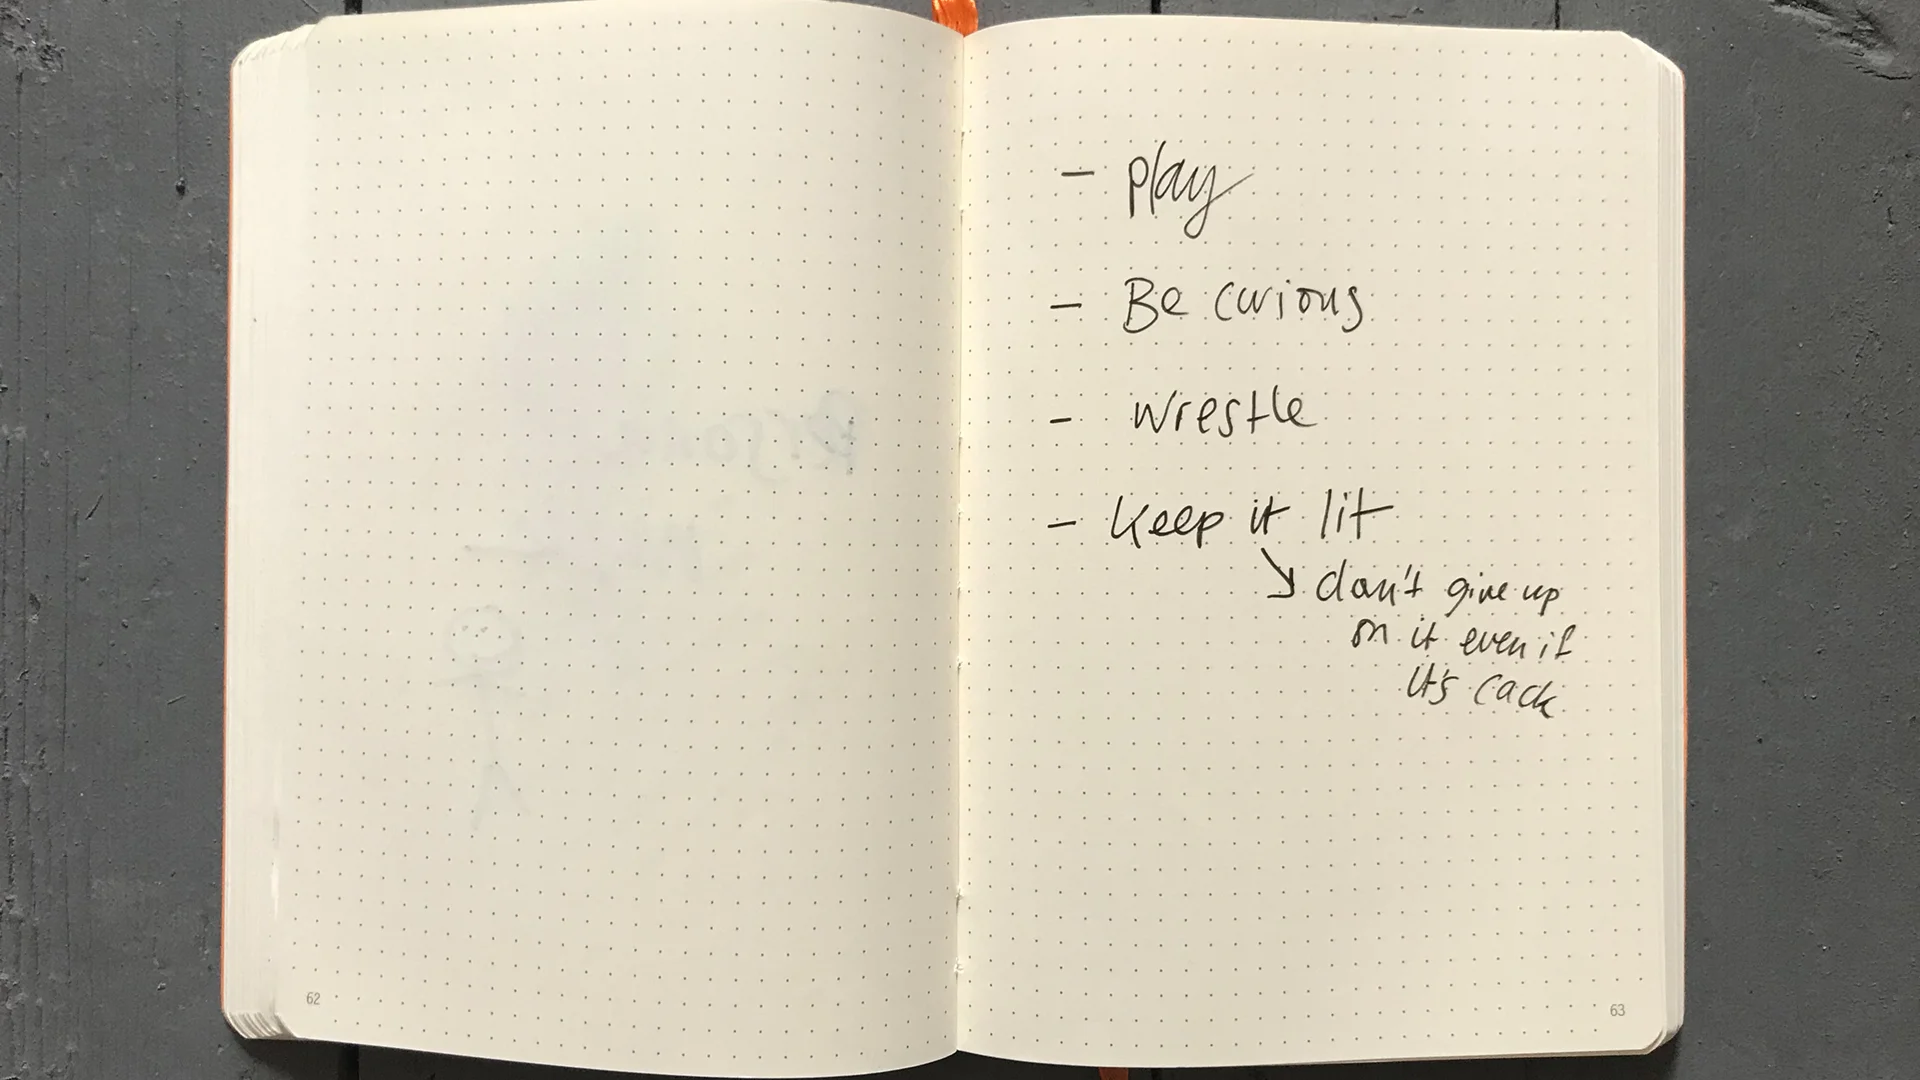 - play
- Be curious
- wrestle
- keep it lit
↘ don't give up
on it even if
it's cack
62
63